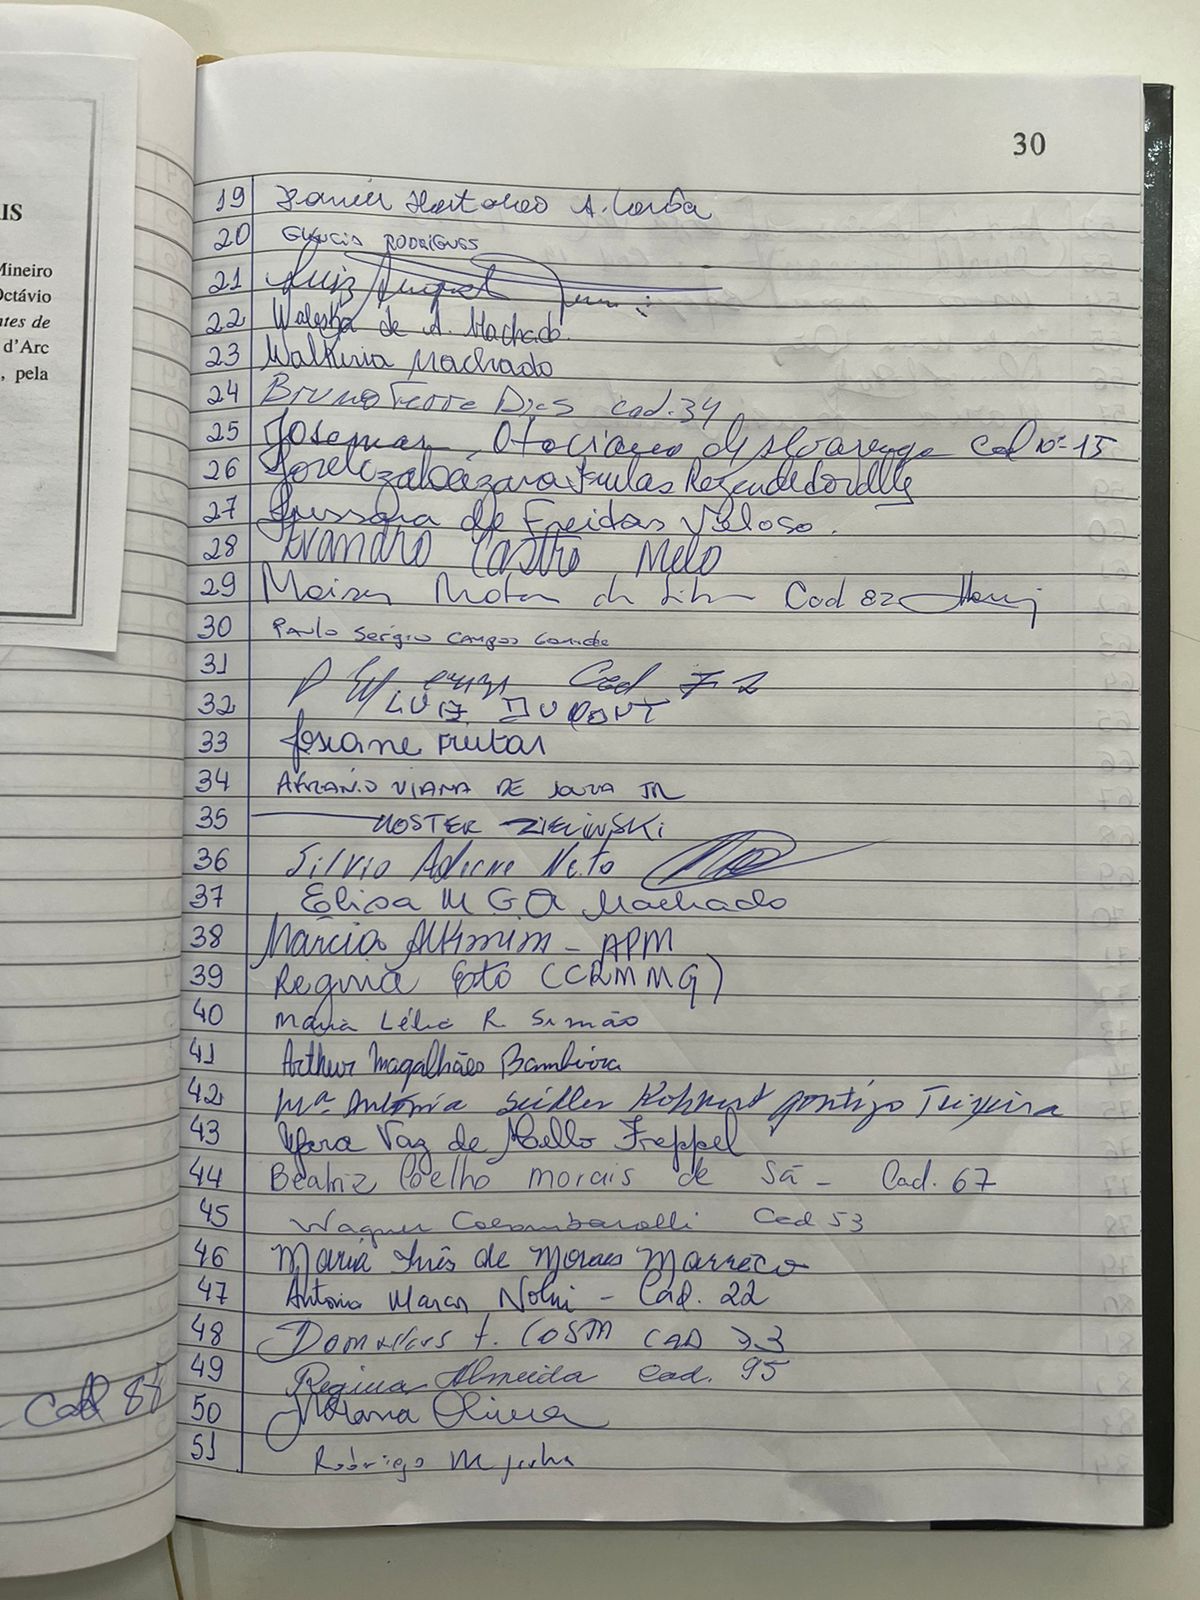 IS
Mineiro
Octávio
ntes de
d'Arc
, pela
Cad 88
30
19
20 RODRIGUES
21 Luiz
22 Waleska de A. Machado
23 Walkiria Machado
24 Bruno Terra Dias cad. 34
25 Josemar Otaviano de Alvarenga Cad nº 15
26 Rezende
27 Jussara de Freitas Veloso.
28 Evandro Castro Melo
29 Moisés Mota da Silva Cad 82
30 Paulo Sérgio Campos
31 Cad 72
32 LUIZ DUPONT
33 Josiane Freitas
34 AFRANIO VIANA DE SOUZA JR
35 KOSTER ZIELINSKI
36 Silvio Neto
37 Elisa M G A Machado
38 Márcia Alkmim - APM
39 Regina (CRMMG)
40 Maria Lélia R. Simão
41 Arthur Magalhães Bambirra
42 Mª Antônia Seidler Teixeira
43 Yara Vaz de Mello Freppel
44 Beatriz Coelho morais de Sá - Cad. 67
45 Wagner Colombarolli Cad 53
46 Maria Inês de Moraes Marreco
47 Antonio Marcos Nohmi - Cad. 22
48 COSTA CAD
49 Regina Almeida Cad. 95
50
51 Rodrigo